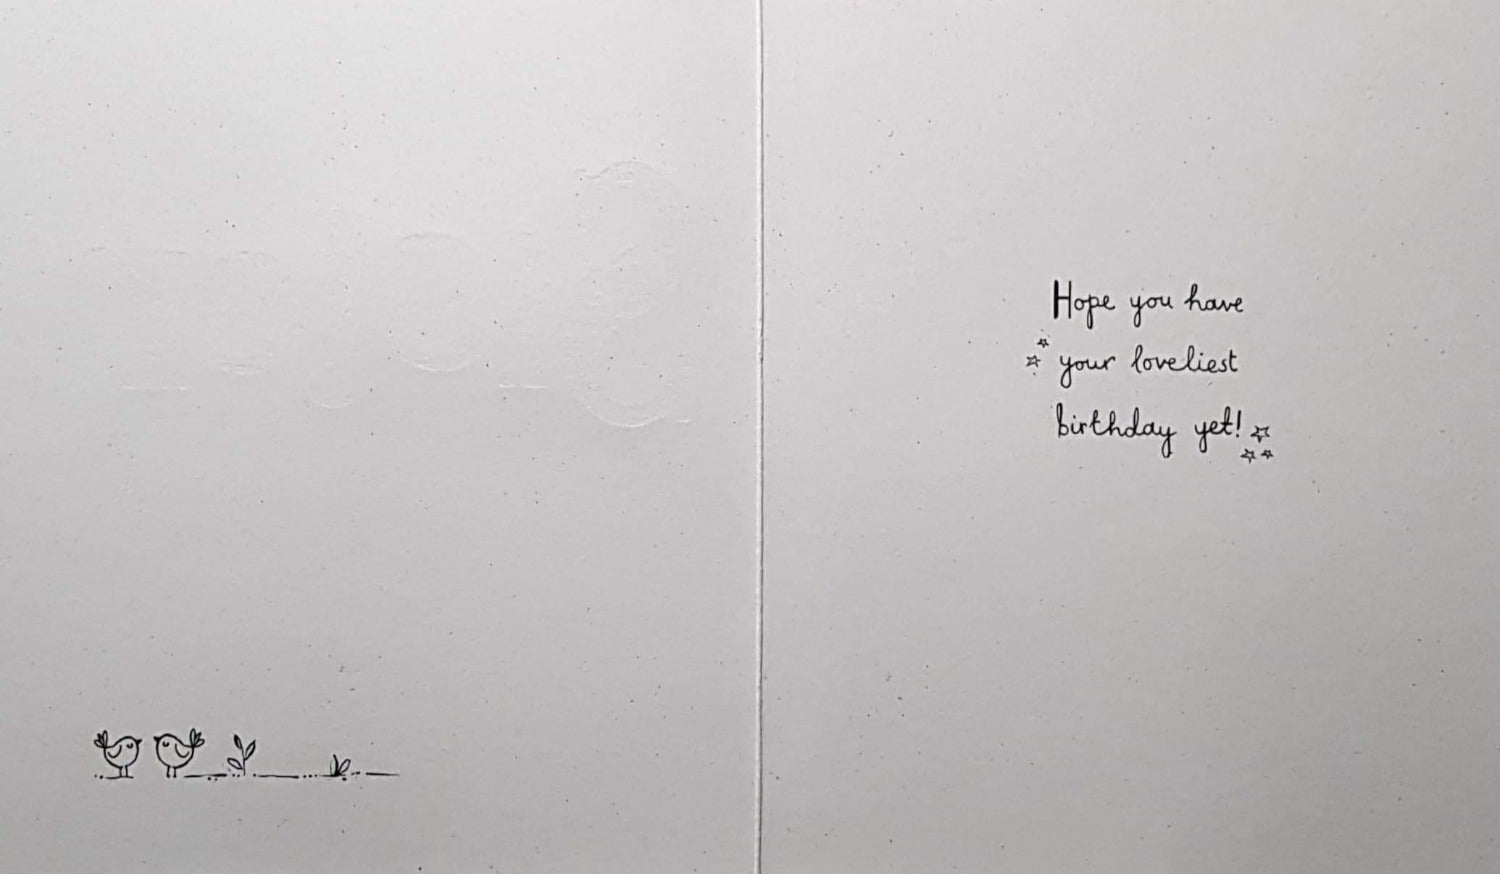 Hope you have
your loveliest
birthday yet!